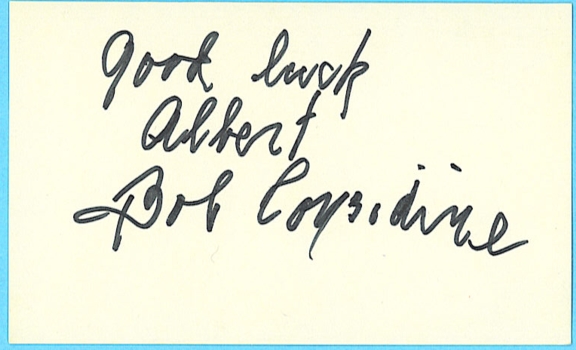 Good luck
Albert
Bob Considine